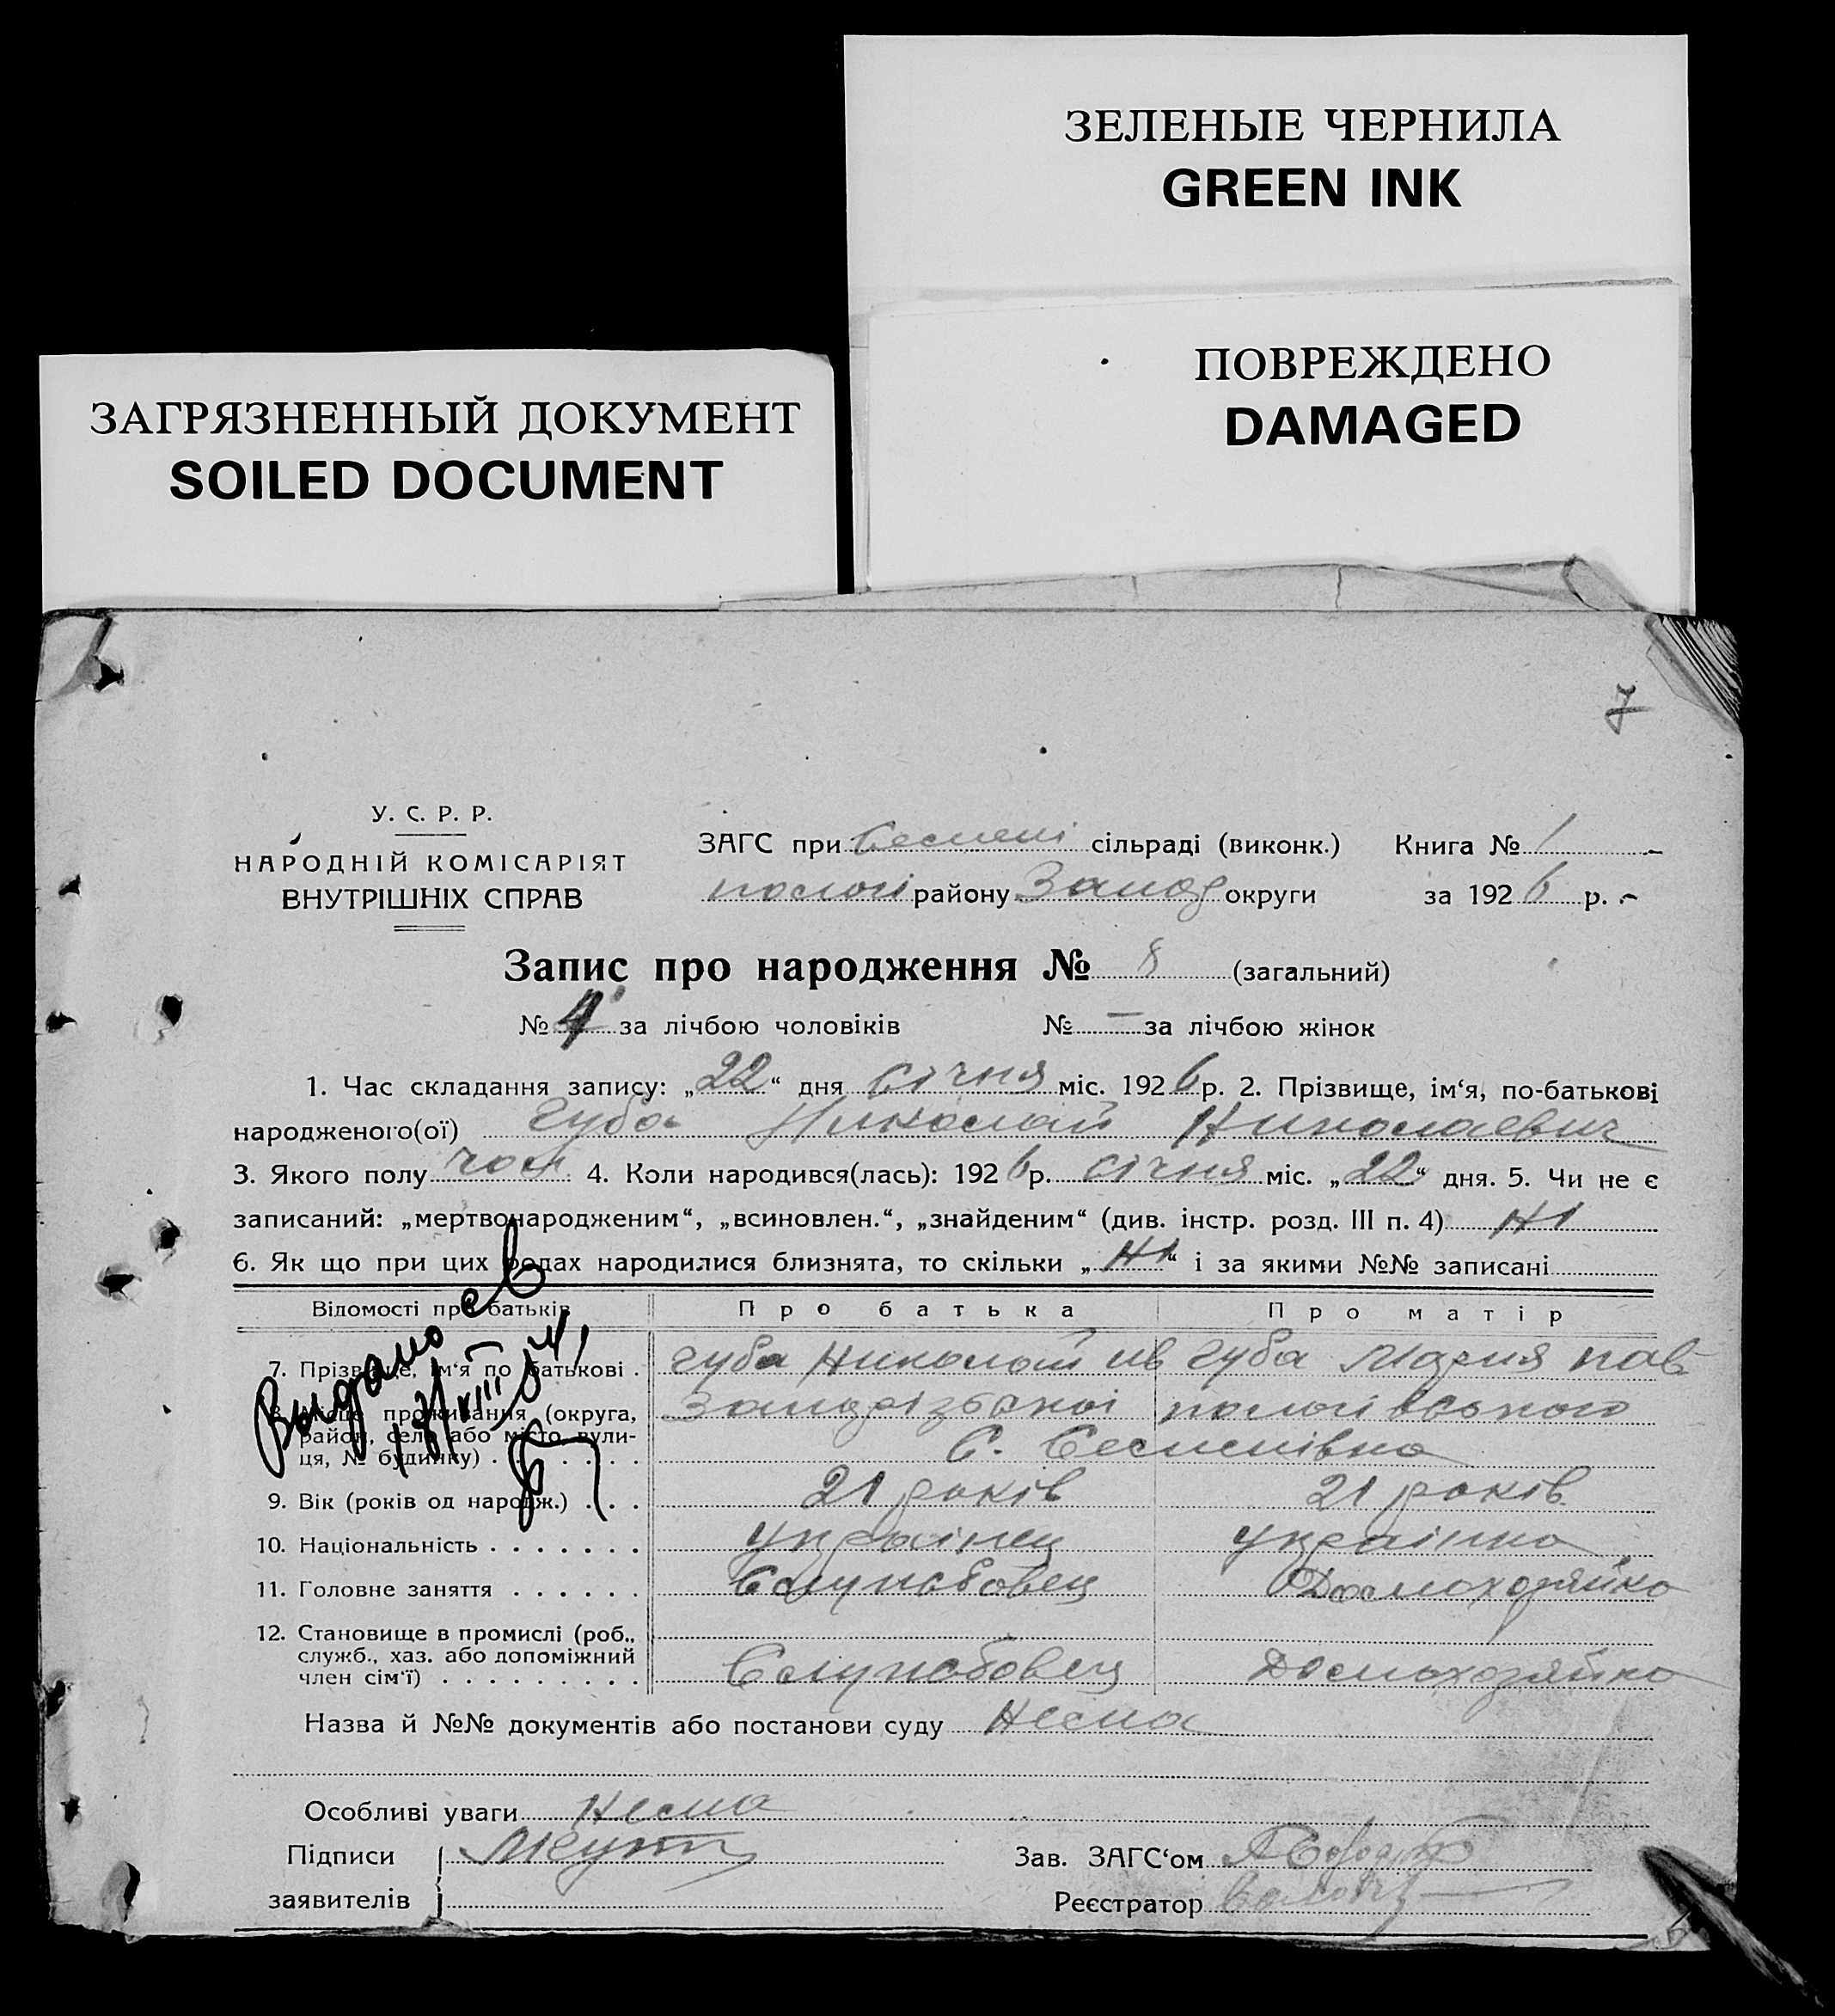 ЗЕЛЕНЫЕ ЧЕРНИЛА
GREEN INK
ПОВРЕЖДЕНО
DAMAGED
ЗАГРЯЗНЕННЫЙ ДОКУМЕНТ
SOILED DOCUMENT
7
У. С. Р. Р.
НАРОДНІЙ КОМІСАРІЯТ
ВНУТРІШНІХ СПРАВ
ЗАГС при сільраді (виконк.) Книга № 1
пологі району Запор округи за 1926 р.
Запис про народження № 8 (загальний)
№ 4 за лічбою чоловіків № — за лічбою жінок
1. Час складання запису: „22“ дня січня міс. 1926 р. 2. Прізвище, ім‘я, по-батькові
народженого(ої) Губа Николай Николаевич
3. Якого полу чол 4. Коли народився(лась): 1926 р. січня міс. „22“ дня. 5. Чи не є
записаний: „мертвонародженим“, „всиновлен.“, „знайденим“ (див. інстр. розд. III п. 4) ні
6. Як що при цих родах народилися близнята, то скільки „ні“ і за якими №№ записані
Відомості про батьків Про батька Про матір
7. Прізвище, ім‘я по батькові . Губа Николай ив Губа Мария пав
8. Місце проживання (округа, Запорізької пологівського
район, село або місто вули-
ця, № будинку) . . . . . . . С.
9. Вік (років од народж.) . . . 21 років 21 років
10. Національність . . . . . . . українец українка
11. Головне заняття . . . . . . Службовец Домохозяйка
12. Становище в промислі (роб.,
служб., хаз. або допоміжний
член сім‘ї) . . . . . . . . . Службовец Домохозяйка
Выдано св
Назва й №№ документів або постанови суду Нема
Особливі уваги Нема
Підписи Зав. ЗАГС‘ом
заявителів Реєстратор